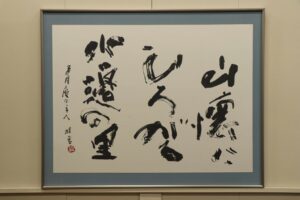 山懷に
ひろがる
水邊の里